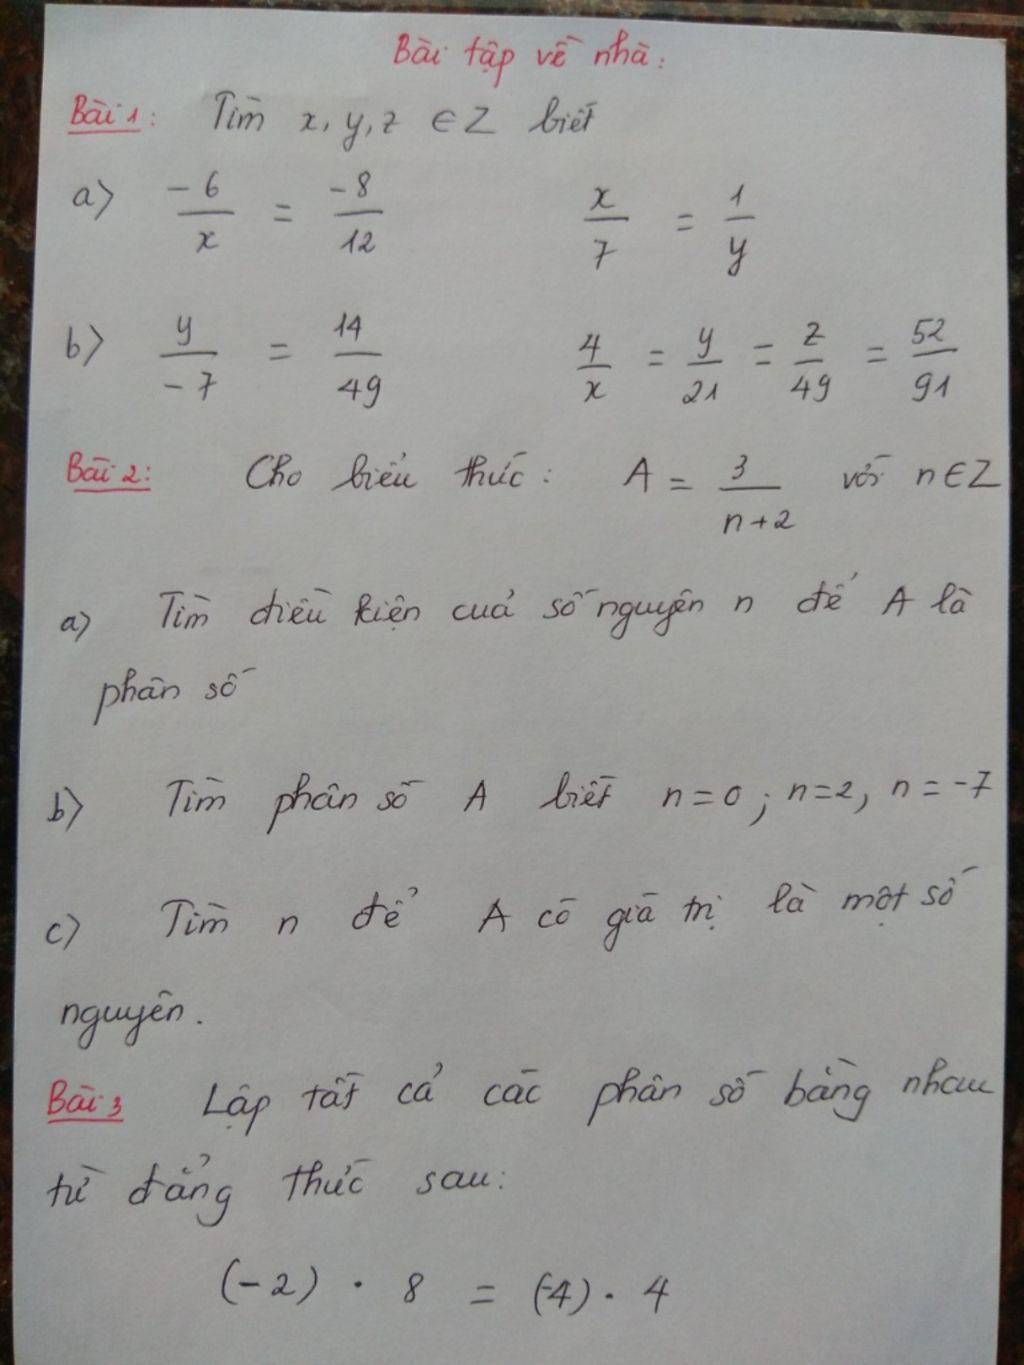 Bài tập về nhà:
Bài 1: Tìm x, y, z ∈ Z biết
a) -6/x = -8/12 x/7 = 1/y
b) y/-7 = 14/49 4/x = y/21 = z/49 = 52/91
Bài 2: Cho biểu thức: A = 3/n+2 với n ∈ Z
a) Tìm điều kiện cuả số nguyên n để A là
phân số
b) Tìm phân số A biết n=0; n=2, n=-7
c) Tìm n để A có giá trị là một số
nguyên.
Bài 3 Lập tất cả các phân số bằng nhau
từ đẳng thức sau:
(-2) . 8 = (-4) . 4